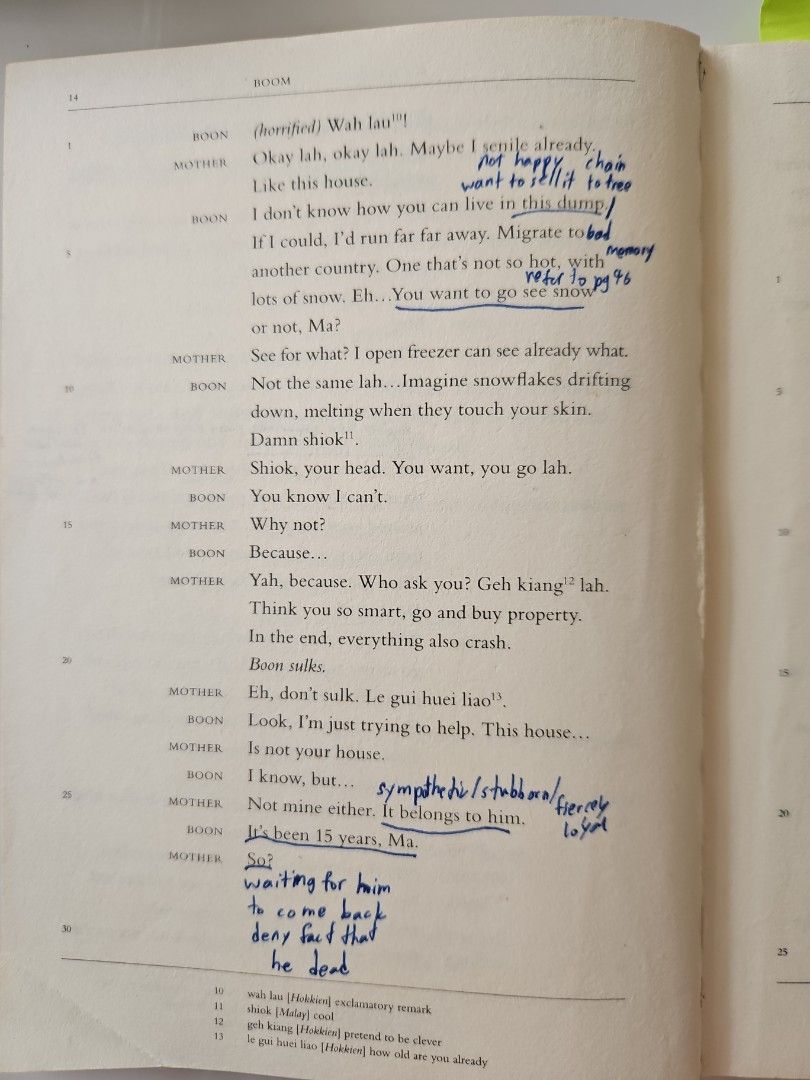 14 BOOM
1 BOON (horrified) Wah lau¹⁰!
MOTHER Okay lah, okay lah. Maybe I senile already.
not happy chain
Like this house.
want to sell it to tree
BOON I don't know how you can live in this dump. /
If I could, I'd run far far away. Migrate to bad
5 another country. One that's not so hot, with memory
refer to pg 46
lots of snow. Eh…You want to go see snow
or not, Ma?
MOTHER See for what? I open freezer can see already what.
10 BOON Not the same lah…Imagine snowflakes drifting
down, melting when they touch your skin.
Damn shiok¹¹.
MOTHER Shiok, your head. You want, you go lah.
BOON You know I can't.
15 MOTHER Why not?
BOON Because…
MOTHER Yah, because. Who ask you? Geh kiang¹² lah.
Think you so smart, go and buy property.
In the end, everything also crash.
20 Boon sulks.
MOTHER Eh, don't sulk. Le gui huei liao¹³.
BOON Look, I'm just trying to help. This house…
MOTHER Is not your house.
BOON I know, but…
sympathetic/stubborn/fiercely
loyal
25 MOTHER Not mine either. It belongs to him.
BOON It's been 15 years, Ma.
MOTHER So?
waiting for him
to come back
deny fact that
30 he dead
10 wah lau [Hokkien] exclamatory remark
11 shiok [Malay] cool
12 geh kiang [Hokkien] pretend to be clever
13 le gui huei liao [Hokkien] how old are you already
1
5
10
15
20
25